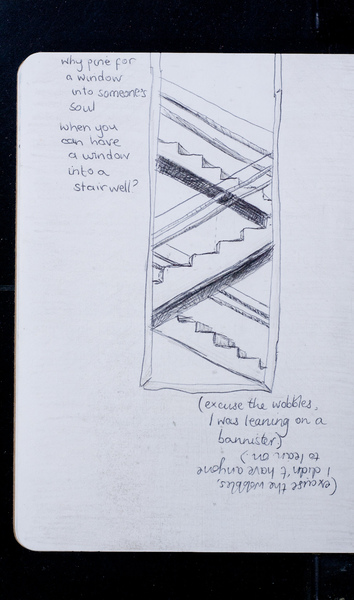 why pine for
a window
into someone's
soul
when you
can have
a window
into a
stairwell?
(excuse the wobbles,
I was leaning on a
bannister)
(excuse the wobbles,
I didn't have anyone
to lean on.)